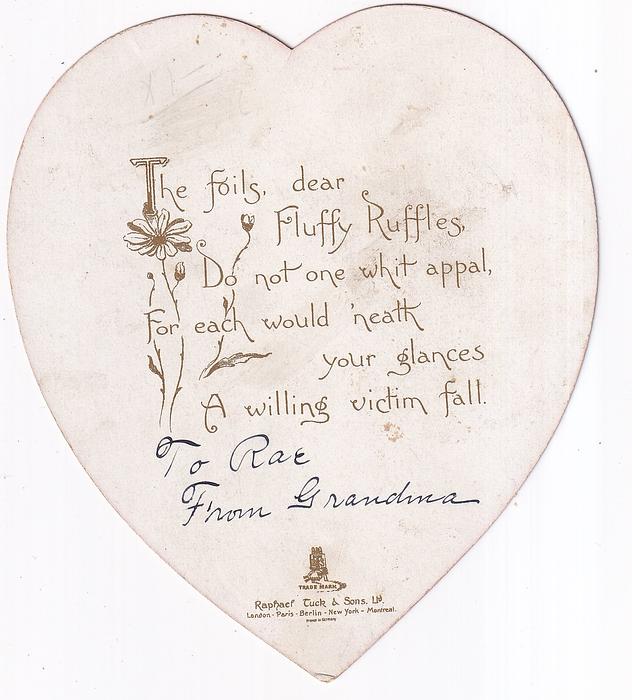 The foils, dear
Fluffy Ruffles,
Do not one whit appal,
For each would 'neath
your glances
A willing victim fall.
To Rae
From Grandma
TRADE MARK
Raphael Tuck & Sons. Ltd.
London - Paris - Berlin - New York - Montreal.
Printed in Germany